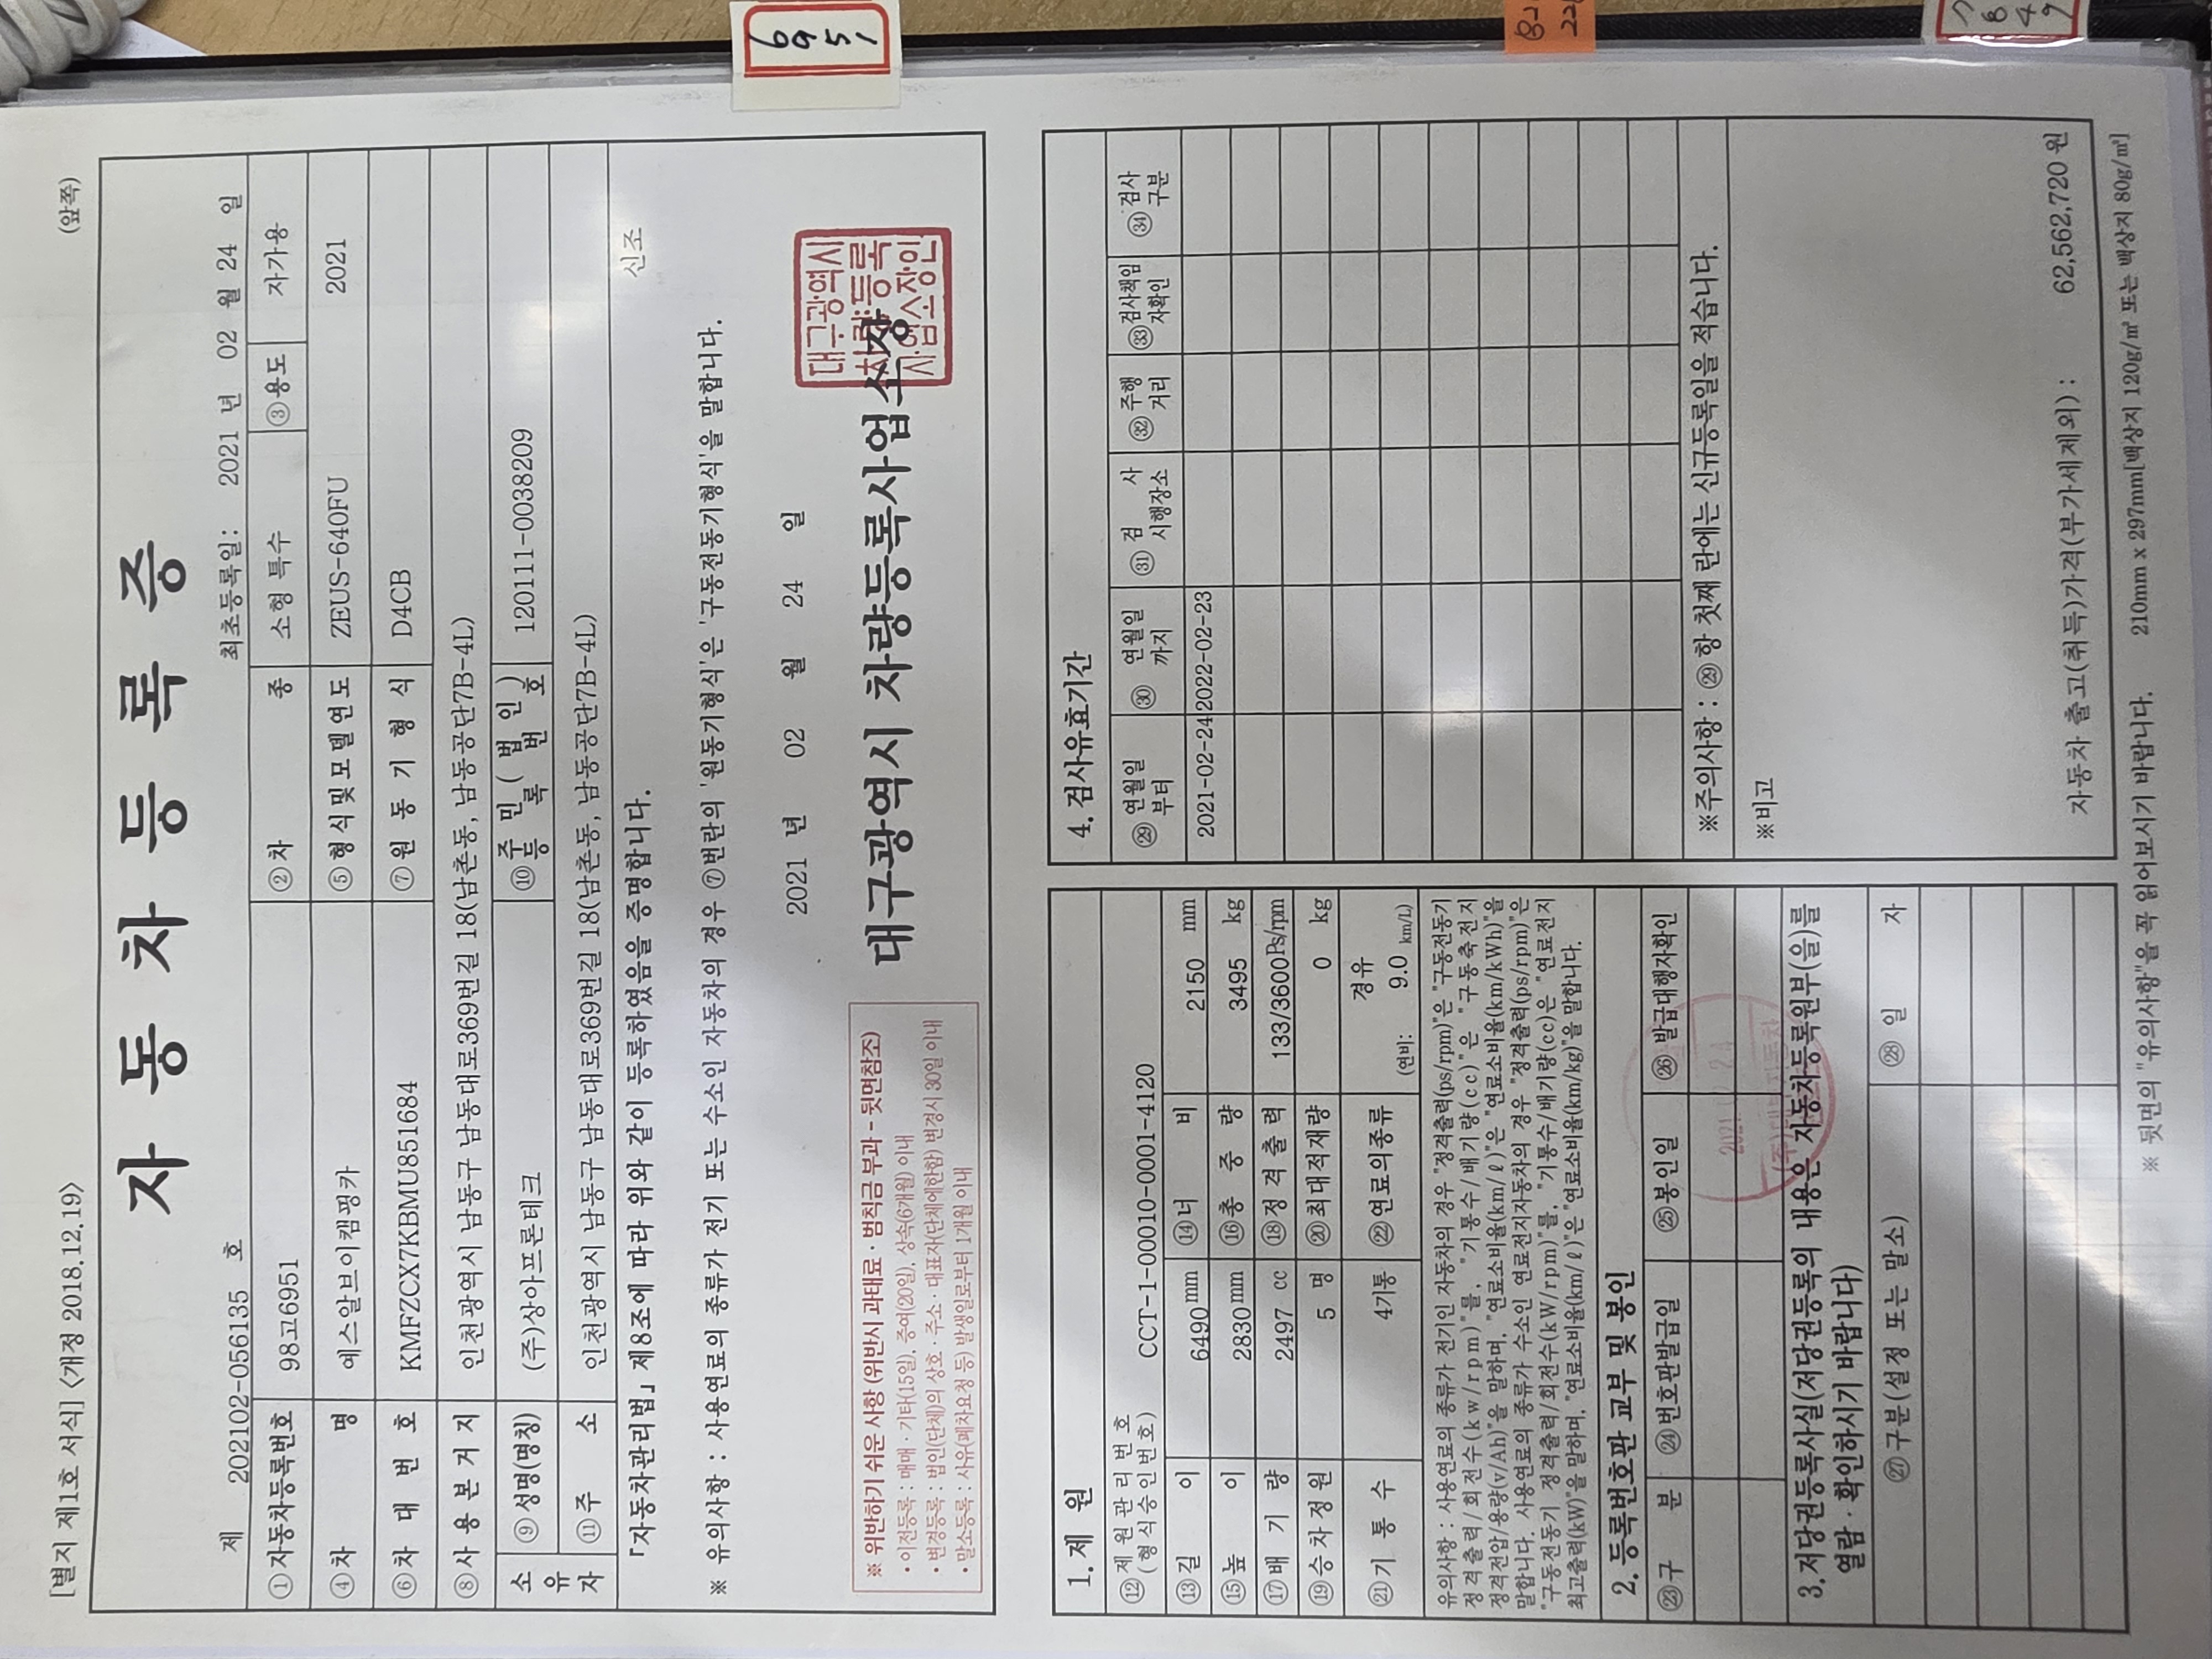 6951
[별지 제1호 서식] <개정 2018.12.19>
(앞쪽)
자 동 차 등 록 증
제 202102-056135 호
최초등록일: 2021 년 02 월 24 일
①자동차등록번호 98고6951 ②차 종 소형 특수 ③용도 자가용
④차 명 에스알브이캠핑카 ⑤형식및모델연도 ZEUS-640FU 2021
⑥차 대 번 호 KMFZCX7KBMU851684 ⑦원 동 기 형 식 D4CB
⑧사 용 본 거 지 인천광역시 남동구 남동대로369번길 18(남촌동, 남동공단7B-4L)
소 유 자 ⑨성명(명칭) (주)상아프론테크 ⑩주 민 ( 법 인 ) 등 록 번 호 120111-0038209
⑪주 소 인천광역시 남동구 남동대로369번길 18(남촌동, 남동공단7B-4L)
「자동차관리법」 제8조에 따라 위와 같이 등록하였음을 증명합니다.
신조
※ 유의사항 : 사용연료의 종류가 전기 또는 수소인 자동차의 경우 ⑦번란의 '원동기형식'은 '구동전동기형식'을 말합니다.
2021 년 02 월 24 일
※ 위반하기 쉬운 사항 (위반시 과태료 · 범칙금 부과 - 뒷면참조)
· 이전등록 : 매매 · 기타(15일), 증여(20일), 상속(6개월) 이내
· 변경등록 : 법인(단체)의 상호 · 주소 · 대표자(단체에한함) 변경시 30일 이내
· 말소등록 : 사유(폐차요청 등) 발생일로부터 1개월 이내
대구광역시 차량등록사업소장
대구광역시
차량등록
사업소장인
1. 제 원
⑫제 원 관 리 번 호
(형식승인번호) CCT-1-00010-0001-4120
⑬길 이 6490 mm ⑭너 비 2150 mm
⑮높 이 2830 mm ⑯총 중 량 3495 kg
⑰배 기 량 2497 cc ⑱정 격 출 력 133/3600 Ps/rpm
⑲승차정원 5 명 ⑳최대적재량 0 kg
㉑기 통 수 4기통 ㉒연료의종류 경유
(연비: 9.0 km/L)
유의사항 : 사용연료의 종류가 전기인 자동차의 경우 "정격출력(ps/rpm)"은 "구동전동기
정격출력/회전수(kw/rpm)"를, "기통수/배기량(cc)"은 "구동축전지
정격전압/용량(v/Ah)"을 말하며, "연료소비율(km/ℓ)"은 "연료소비율(km/kWh)"을
말합니다. 사용연료의 종류가 수소인 연료전지자동차의 경우 "정격출력(ps/rpm)"은
"구동전동기 정격출력/회전수(kW/rpm)"를, "기통수/배기량(cc)은 "연료전지
최고출력(kW)"을 말하며, "연료소비율(km/ℓ)"은 "연료소비율(km/kg)"을 말합니다.
2. 등록번호판 교부 및 봉인
㉓구 분 ㉔번호판발급일 ㉕봉인일 ㉖발급대행자확인
3. 저당권등록사실(저당권등록의 내용은 자동차등록원부(을)를
열람 · 확인하시기 바랍니다)
㉗구분(설정 또는 말소) ㉘일 자
4. 검사유효기간
㉙연월일 부터 ㉚연월일 까지 ㉛검 사 시행장소 ㉜주행 거리 ㉝검사책임 자확인 ㉞검사 구분
2021-02-24 2022-02-23
※주의사항 : ㉙항 첫째 란에는 신규등록일을 적습니다.
※비고
자동차 출고(취득)가격(부가세제외) : 62,562,720 원
※ 뒷면의 "유의사항"을 꼭 읽어보시기 바랍니다. 210mm x 297mm[백상지 120g/㎡ 또는 백상지 80g/㎡]